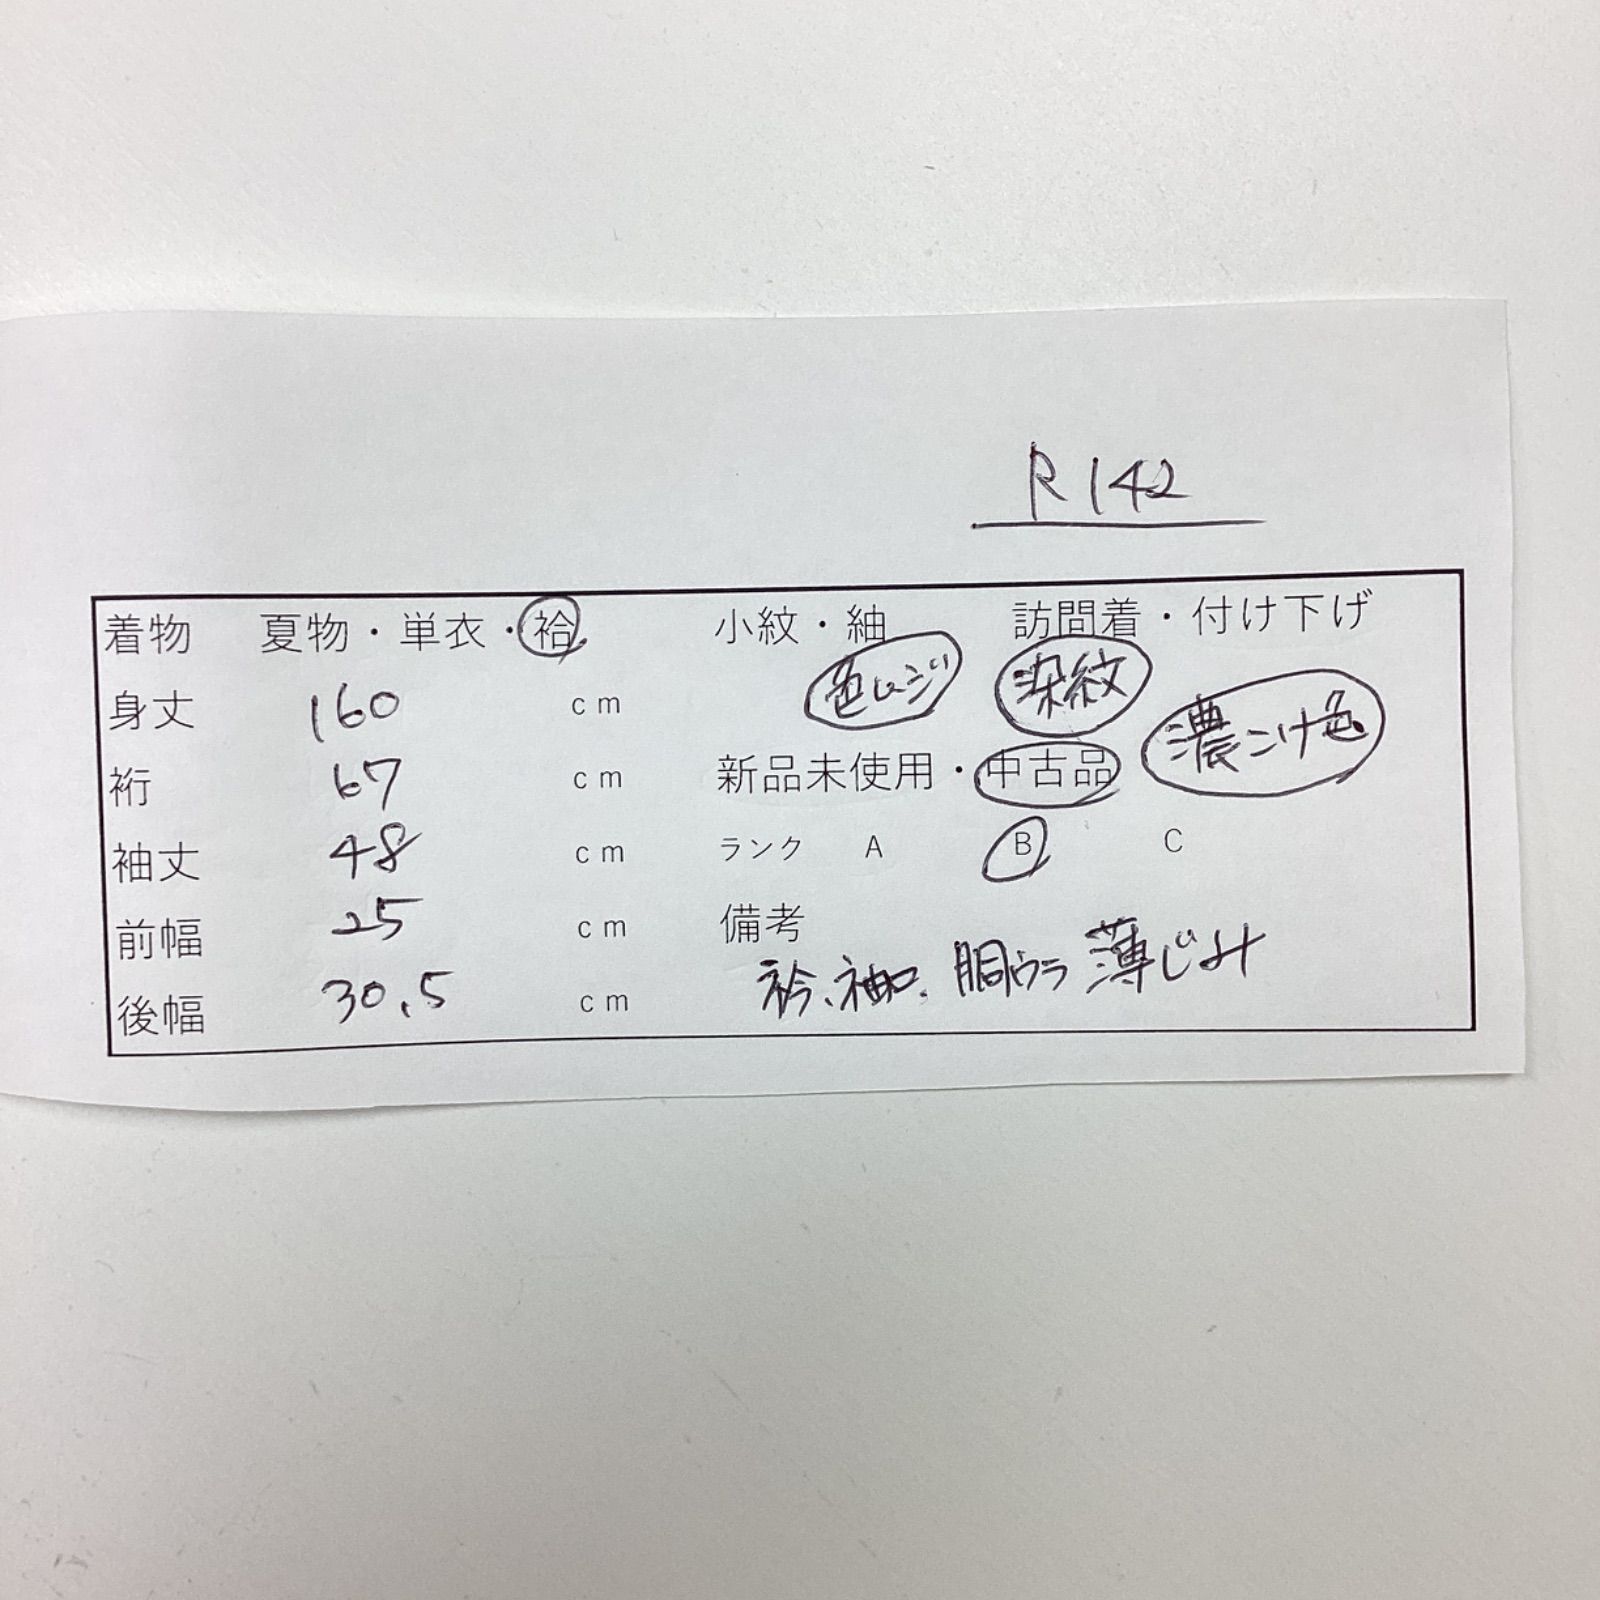 R142
着物 夏物・単衣・袷 小紋・紬 訪問着・付け下げ
身丈 160 cm 色ムジ 染紋 濃こけ色
裄 67 cm 新品未使用・中古品
袖丈 48 cm ランク A B C
前幅 25 cm 備考
後幅 30.5 cm 衿、袖口、胴ウラ薄じみ